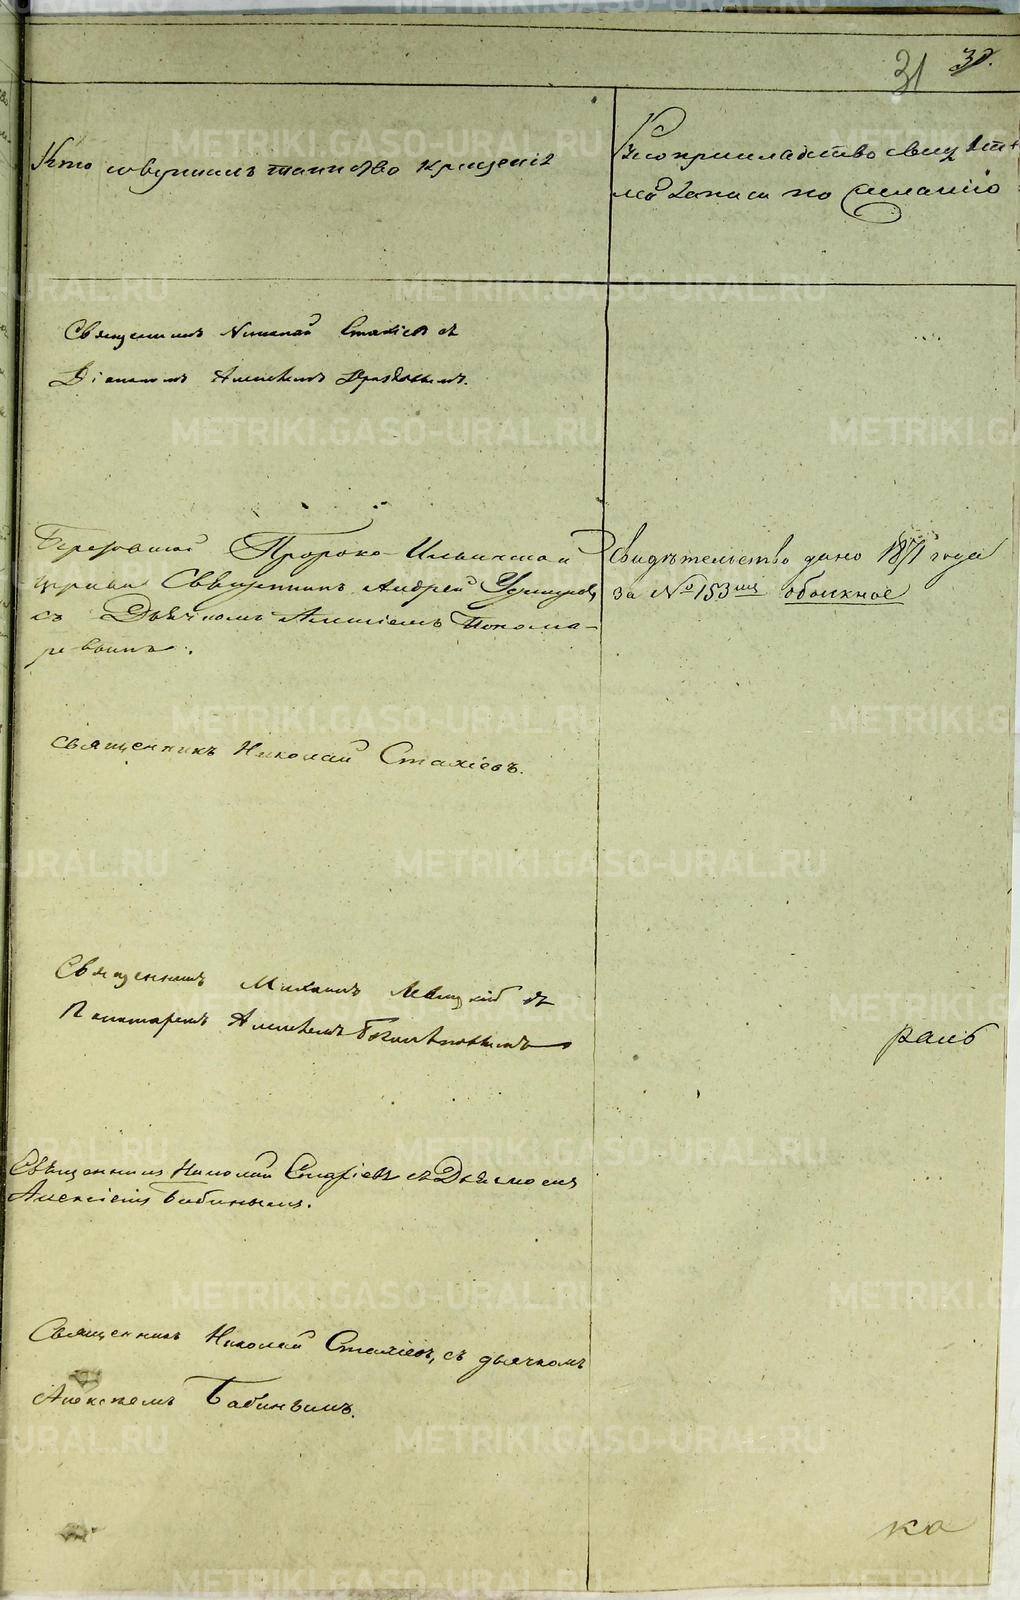 31 30.
Кто совершалъ таинство крещенія
Рукоприкладство свидѣте-
лей записи по желанію
Священникъ Николай Стахіевъ съ
Діакономъ Алексѣемъ
Березовской Пророко-Ильинской
церкви Священникъ Андрей
съ Дьячкомъ Алексіемъ Понома-
ревымъ.
Свидѣтельство дано 1871 года
за № 153мъ обыскное
Священникъ Николай Стахіевъ.
Священникъ Михаилъ Левицкій съ
Пономаремъ Алексѣемъ
раль
Священникъ Николай Стахіевъ съ Дьячкомъ
Алексіемъ Бабинымъ.
Священникъ Николай Стахіевъ, съ дьячкомъ
Алексѣемъ Бабинымъ.
ка
METRIKI.GASO-URAL.RU